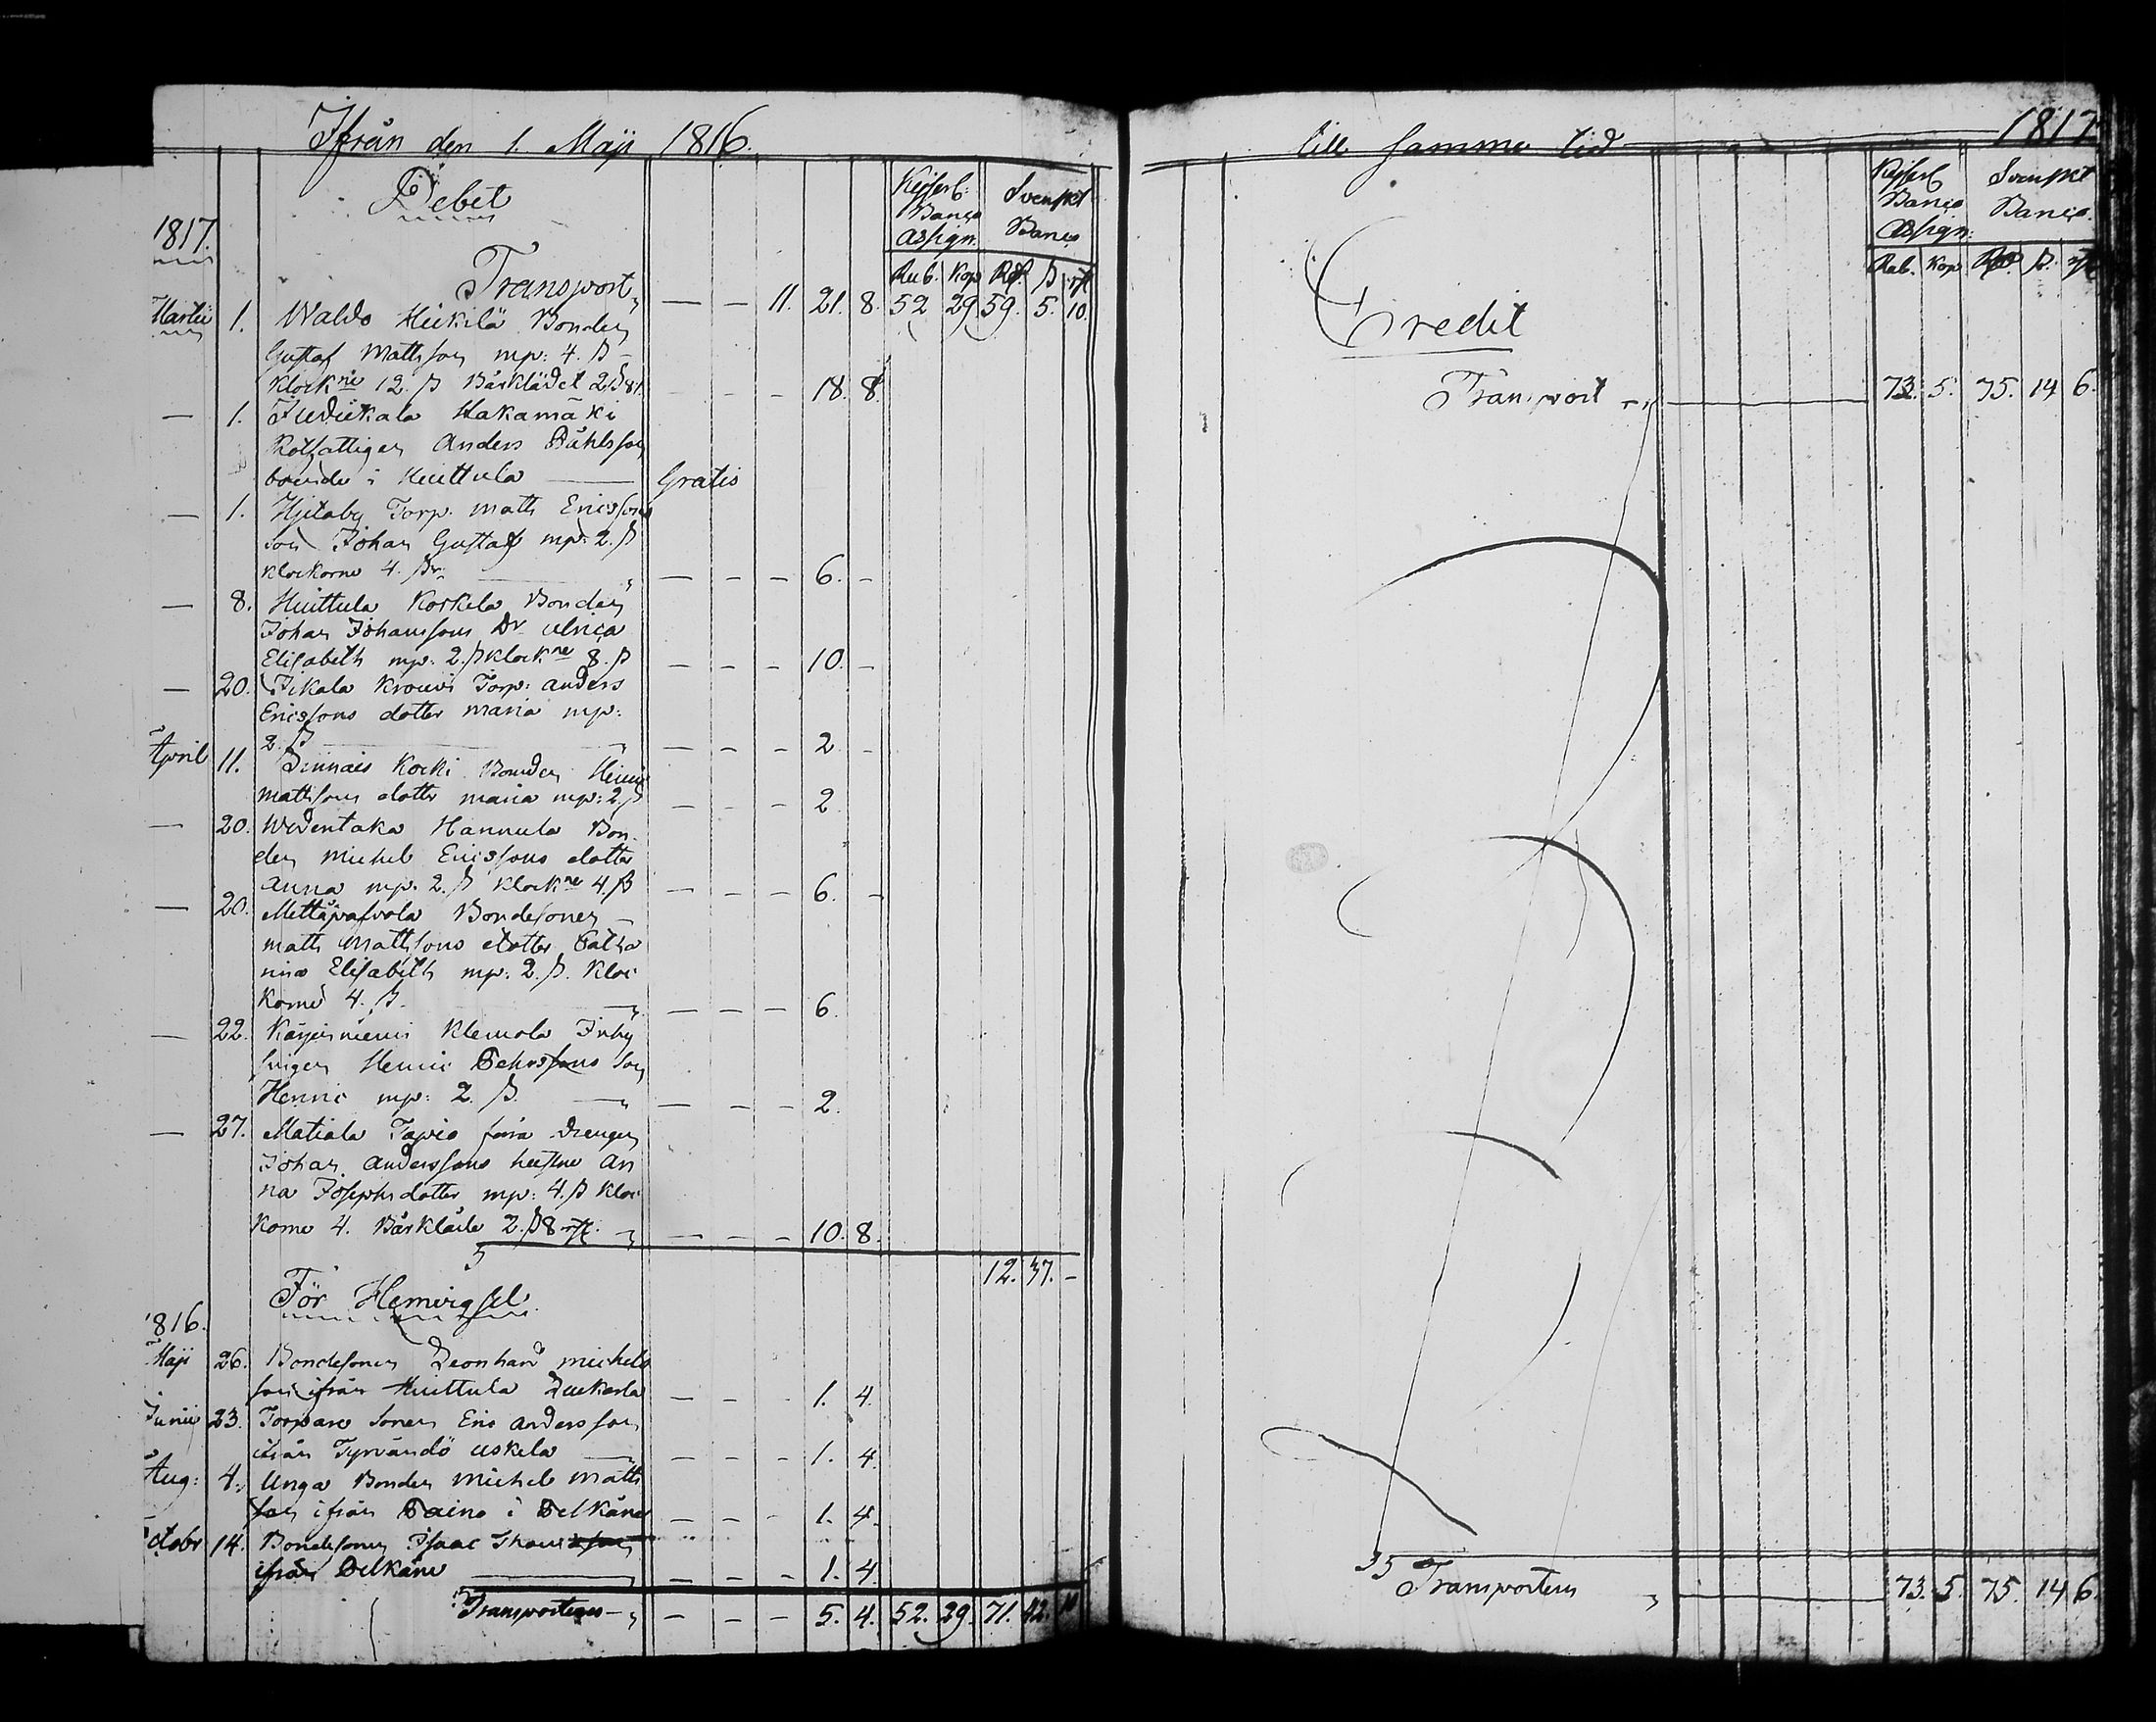 Ifrån den 1. Maji 1816.
Debet
Keijserl: Banco Assign. Svenskt Banco
1817.
Rub. Kop Rdr. ß rst
Transport, — — 11. 21. 8. 52 29 59. 5. 10.
Martii 1. Waldo Heikilä Bonden
Gustaf Mattsson mp: 4. ß –
klockne 12. ß Bårklädet 2 ß 8 – – – 18. 8.
— 1. Hakamäki
Rotfattigen Anders Påhlsson
boende i Huittula — Gratis
— 1. Torp. Matts Ericssons
son Johan Gustaf mp: 2. ß
klockorne 4. ß — — — 6. –
— 8. Huittula Korkela Bonden
Johan Johanssons Dr Ulrica
Elisabeth mp: 2. ß klockne 8. ß — — — 10. –
— 20. Torp: Anders
Ericssons dotter Maria mp:
2. ß — — — 2 –
April 11. Kocki Bonden
Mattsons dotter Maria mp: 2. ß — — — 2
— 20. Wedentaka Hannula Bon-
den Michel Ericssons dotter
Anna mp. 2. ß klockne 4. ß — — — 6. –
— 20. Bondesonen –
Matts Mattsons dotter Catha
rina Elisabeth mp: 2. ß. kloc
korne 4. ß. — — — 6.
— 22. Klemola Inhy
singen Henric son
Henric mp: 2. ß. — — — 2.
— 27. Matiala Tapio Drengen
Johan Anderssons hustru An
na Josephsdotter mp: 4. ß kloc
korne 4. Bårkläde 2. ß 8 rst. — — — 10. 8.
12. 37. –
För Hemvigsel
1816.
Maji 26. Bondesonen Leonhard Michels
son ifrån Huittula — — 1. 4.
Junii 23. Torpare sonen Eric Andersson
ifrån Uskela — — – 1. 4.
Aug: 4. Unga Bonden Michel Matts
son ifrån i Pelkäne – – – 1. 4.
Octobr 14. Bondesonen Isaac
ifrån Pelkäne — — — — 1. 4.
Transporteres – — – – 5. 4. 52. 29. 71. 42. 10
till samma tid 1817
Keijserl Banco Assign: Svenskt Banco.
Rub. Kop Rdr. ß. rst
Credit
Transport — 73. 5. 75. 14 6.
35
Transporteres — 73. 5. 75. 14 6.